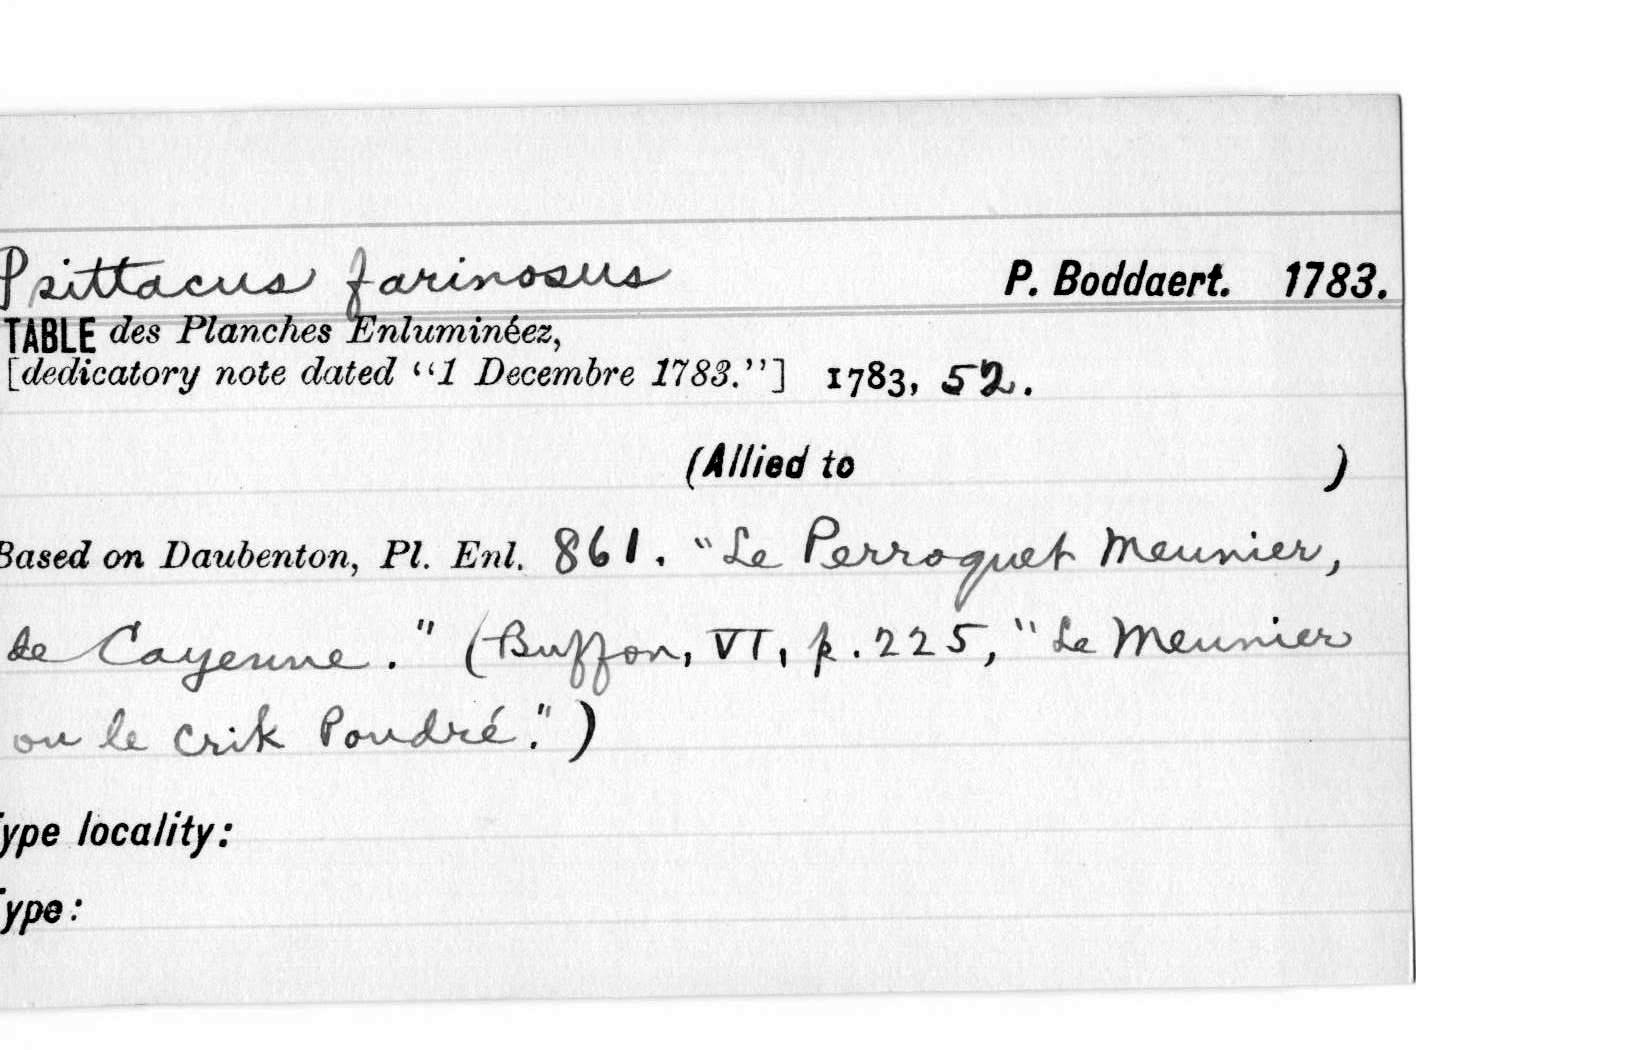 Psittacus farinosus P. Boddaert. 1783.
TABLE des Planches Enluminéez,
[dedicatory note dated "1 Decembre 1783."] 1783, 52.
(Allied to )
Based on Daubenton, Pl. Enl. 861. "Le Perroquet Meunier,
de Cayenne." (Buffon, VI, p. 225, "Le Meunier
ou le Crik Poudré.")
Type locality:
Type: